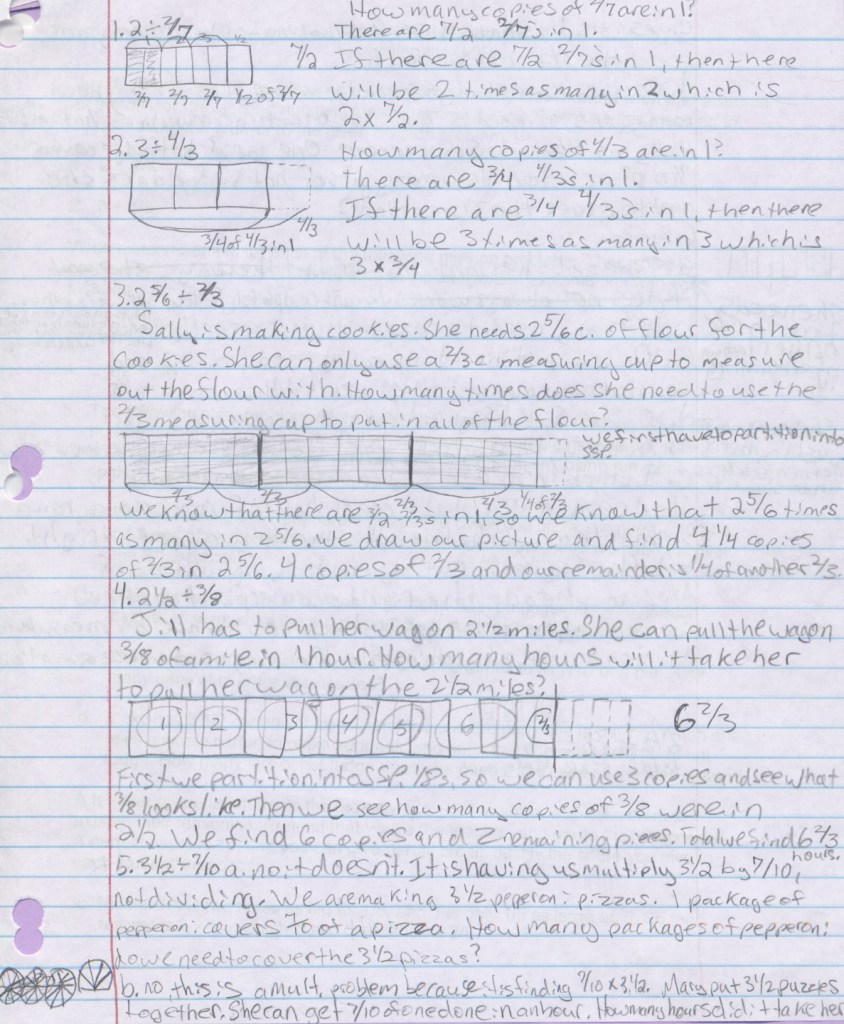 How many copies of 2/7 are in 1?
1. 2 ÷ 2/7 There are 7/2 2/7's in 1.
7/2 If there are 7/2 2/7's in 1, then there
2/7 2/7 2/7 1/2 of 2/7 will be 2 times as many in 2 which is
2 x 7/2.
2. 3 ÷ 4/3 How many copies of 4/3 are in 1?
There are 3/4 4/3's in 1.
4/3 If there are 3/4 4/3's in 1, then there
3/4 of 4/3 in 1 will be 3 times as many in 3 which is
3 x 3/4
3. 2 5/6 ÷ 2/3
Sally is making cookies. She needs 2 5/6 c. of flour for the
cookies. She can only use a 2/3 c measuring cup to measure
out the flour with. How many times does she need to use the
2/3 measuring cup to put in all of the flour?
we first have to partition into
SSP.
2/3 2/3 2/3 2/3 1/4 of 2/3
We know that there are 3/2 2/3's in 1, so we know that 2 5/6 times
as many in 2 5/6. We draw our picture and find 4 1/4 copies
of 2/3 in 2 5/6. 4 copies of 2/3 and our remainder is 1/4 of another 2/3.
4. 2 1/2 ÷ 3/8
Jill has to pull her wagon 2 1/2 miles. She can pull the wagon
3/8 of a mile in 1 hour. How many hours will it take her
to pull her wagon the 2 1/2 miles?
1 2 3 4 5 6 2/3 6 2/3
First we partition into SSP, 1/8s, so we can use 3 copies and see what
3/8 looks like. Then we see how many copies of 3/8 were in
2 1/2. We find 6 copies and 2 remaining pieces. Total we find 6 2/3
hours.
5. 3 1/2 ÷ 7/10 a. no it doesn't. It is having us multiply 3 1/2 by 7/10,
not dividing. We are making 3 1/2 peperoni pizzas. 1 package of
pepperoni covers 7/10 of a pizza. How many packages of pepperoni
do we need to cover the 3 1/2 pizzas?
b. no, this is a mult. problem because its finding 7/10 x 3 1/2. Mary put 3 1/2 puzzles
together. She can get 7/10 of one done in an hour. How many hours did it take her